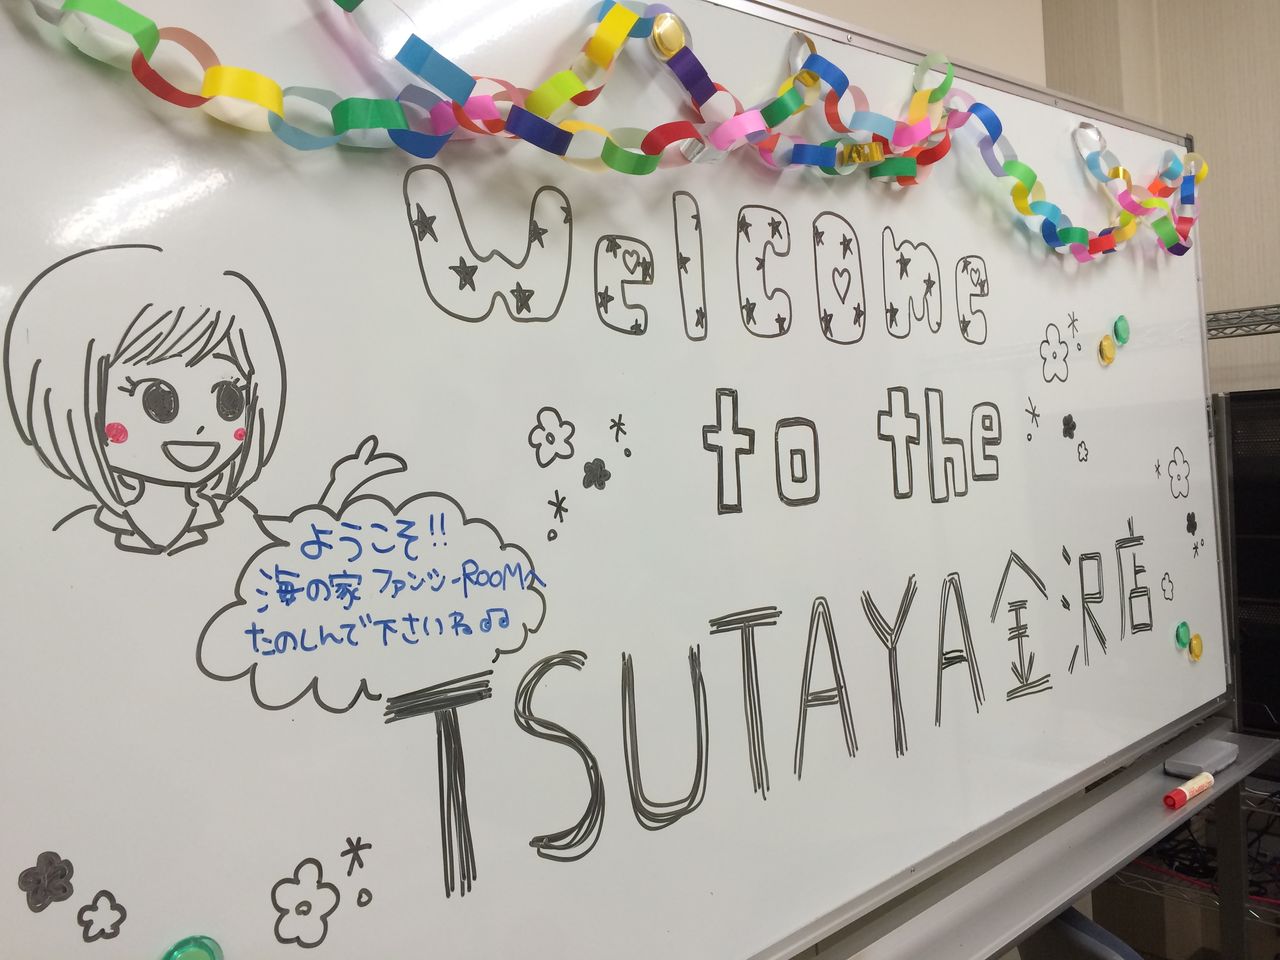 Welcome
to the
TSUTAYA金沢店
ようこそ!!
海の家ファンシーROOMへ
たのしんで下さいね♫